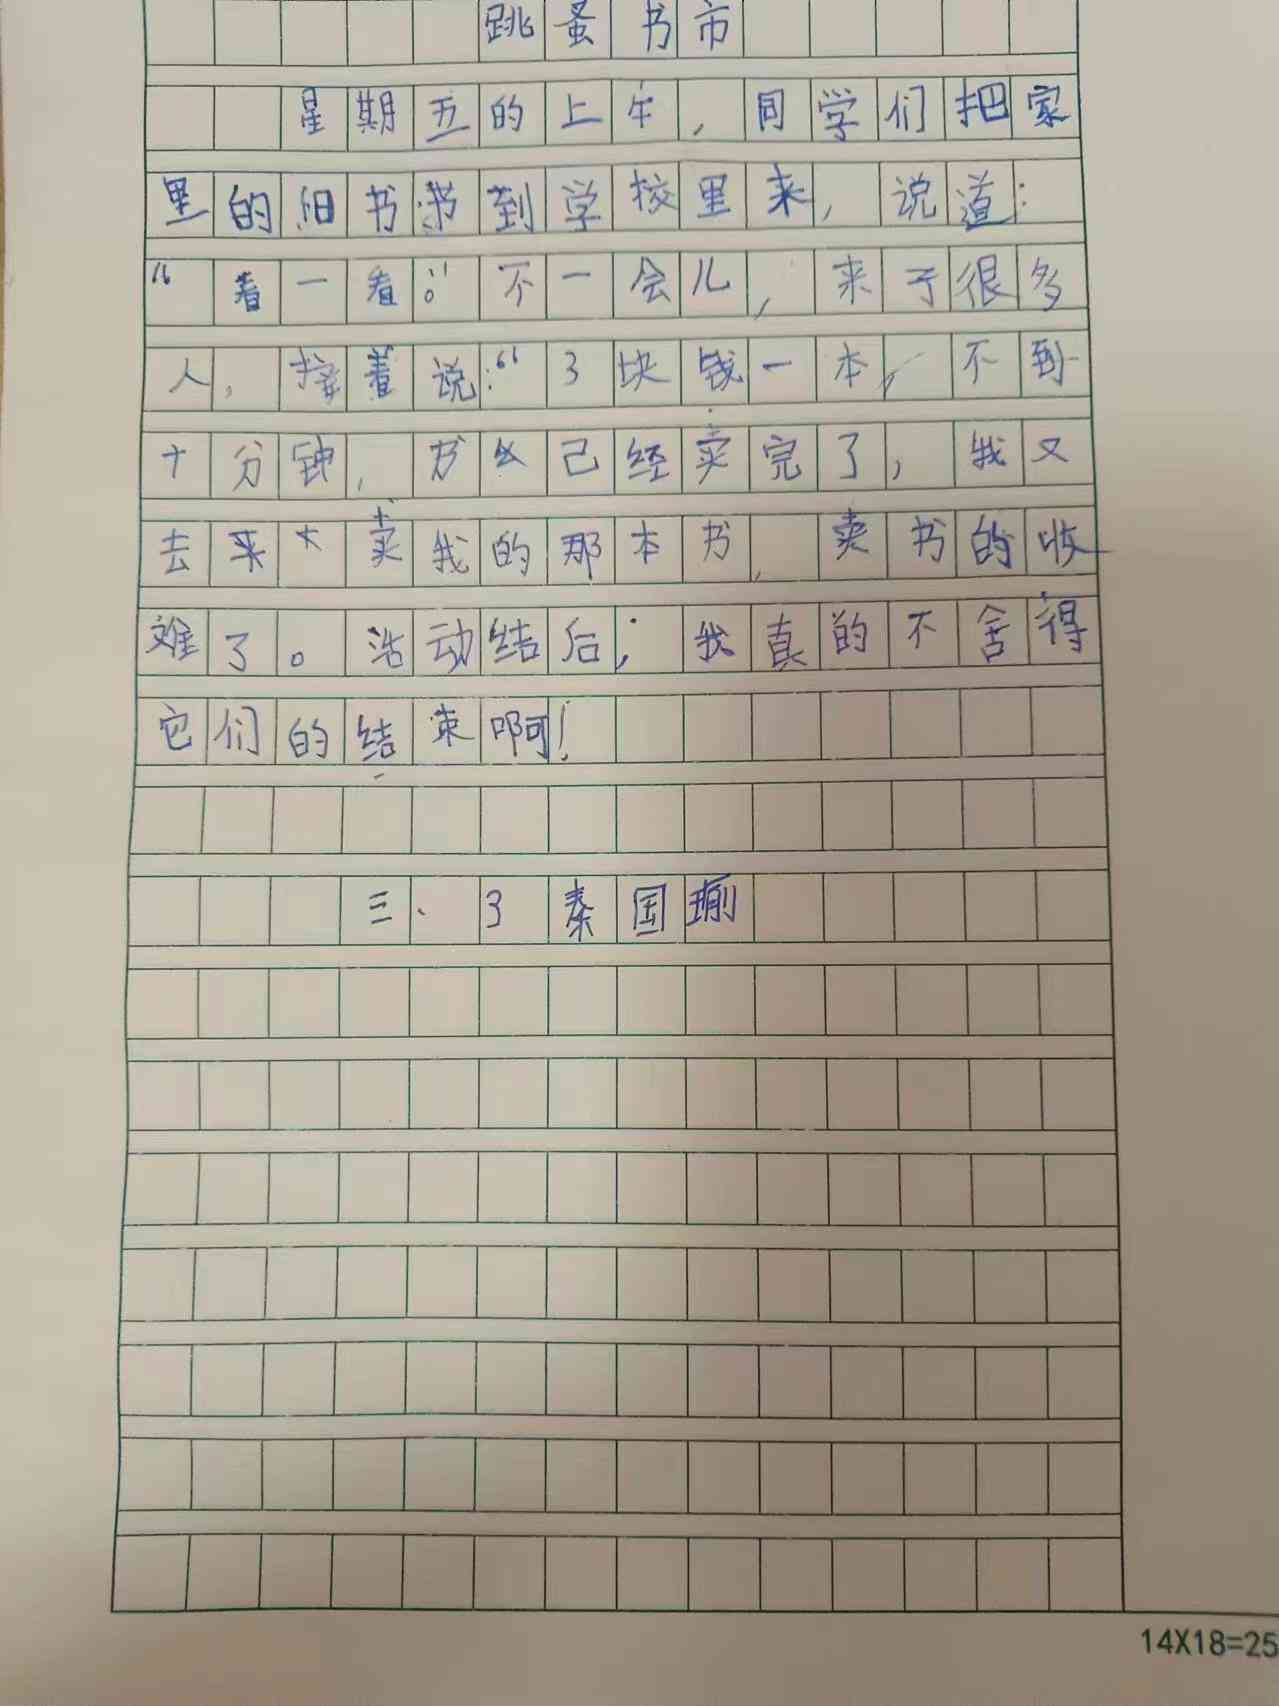 跳蚤书市
星期五的上午,同学们把家
里的旧书带到学校里来,说道:
“看一看。”不一会儿,来了很多
人,接着说:“3块钱一本,不到
十分钟,书么已经卖完了,我又
去来大卖我的那本书,卖书的收
难了。活动结后,我真的不舍得
它们的结束啊!
三、3秦国
14X18=25